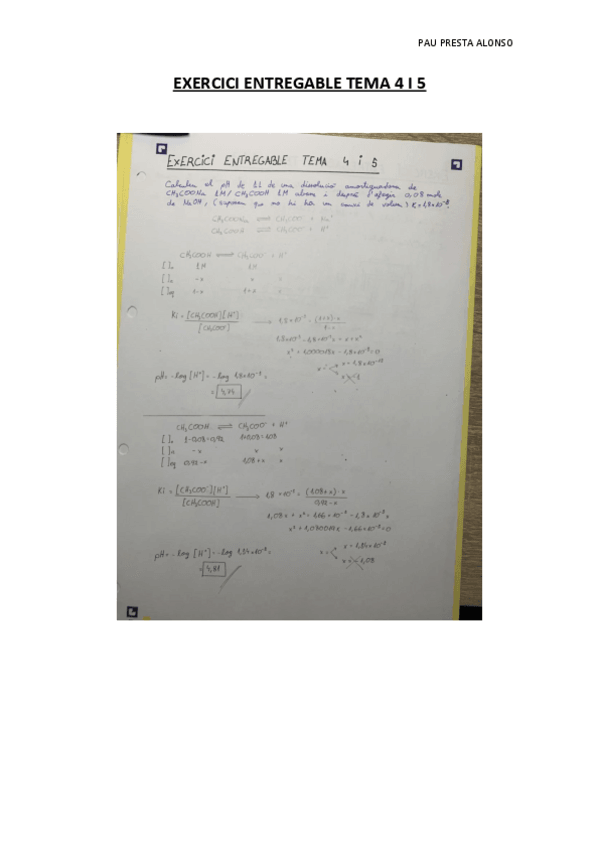 PAU PRESTA ALONSO
EXERCICI ENTREGABLE TEMA 4 I 5
EXERCICI ENTREGABLE TEMA 4 i 5
Calculeu el pH de 1L de una dissolució amortiguadora de
CH₃COONa 1M / CH₃COOH 1M abans i després d'afegir 0,08 mols
de NaOH, (suposem que no hi ha un canvi de volum) K=1,8×10⁻⁵
CH₃COONa ⇌ CH₃COO⁻ + Na⁺
CH₃COOH ⇌ CH₃COO⁻ + H⁺
CH₃COOH ⇌ CH₃COO⁻ + H⁺
[ ]₀ 1M 1M
-x x x
[ ]eq 1-x 1+x x
Ki = [CH₃COO⁻][H⁺] / [CH₃COOH] → 1,8×10⁻⁵ = (1+x)·x / 1-x
1,8×10⁻⁵ - 1,8×10⁻⁵x = x + x²
x² + 1,000018x - 1,8×10⁻⁵ = 0
x = x = 1,8×10⁻⁵
pH = -log [H⁺] = -log 1,8×10⁻⁵ =
= 4,74
CH₃COOH ⇌ CH₃COO⁻ + H⁺
[ ]₀ 1-0,08=0,92 1+0,08=1,08
-x x x
[ ]eq 0,92-x 1,08+x x
Ki = [CH₃COO⁻][H⁺] / [CH₃COOH] → 1,8×10⁻⁵ = (1,08+x)·x / 0,92-x
1,08x + x² = 1,66×10⁻⁵ - 1,8×10⁻⁵x
x² + 1,080018x - 1,66×10⁻⁵ = 0
x = x = 1,54×10⁻⁵
x = -1,08
pH = -log [H⁺] = -log 1,54×10⁻⁵ =
= 4,81